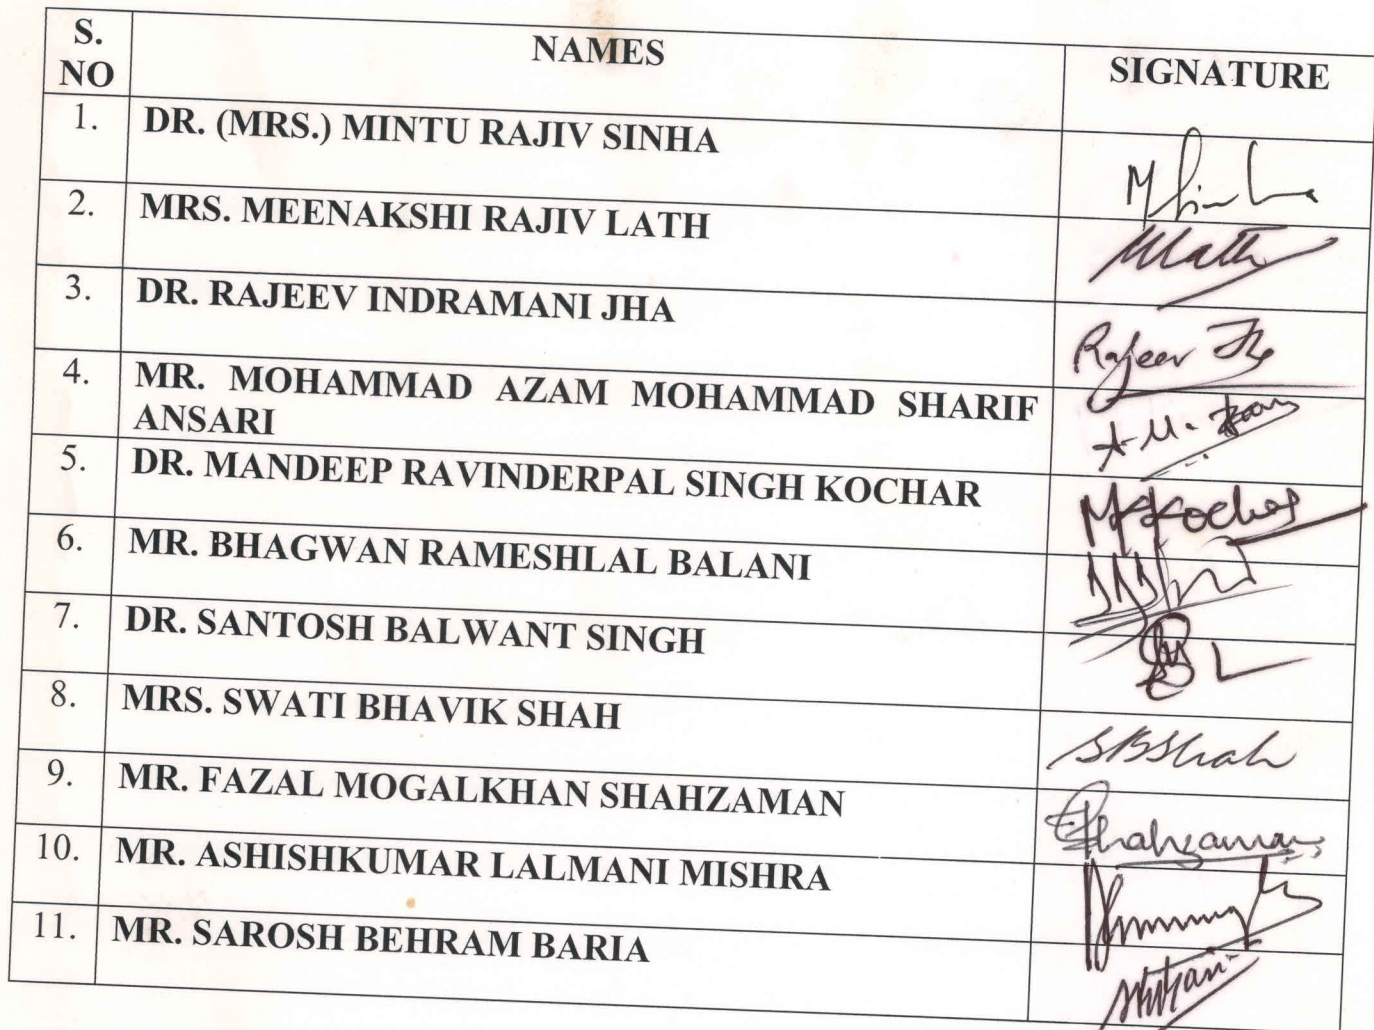 S. NO
NAMES
SIGNATURE
1. DR. (MRS.) MINTU RAJIV SINHA
M Sinha
2. MRS. MEENAKSHI RAJIV LATH
MLath
3. DR. RAJEEV INDRAMANI JHA
Rajeev Jha
4. MR. MOHAMMAD AZAM MOHAMMAD SHARIF
ANSARI
A.M.
5. DR. MANDEEP RAVINDERPAL SINGH KOCHAR
MKKochar
6. MR. BHAGWAN RAMESHLAL BALANI
7. DR. SANTOSH BALWANT SINGH
8. MRS. SWATI BHAVIK SHAH
SBShah
9. MR. FAZAL MOGALKHAN SHAHZAMAN
Shahzaman
10. MR. ASHISHKUMAR LALMANI MISHRA
11. MR. SAROSH BEHRAM BARIA